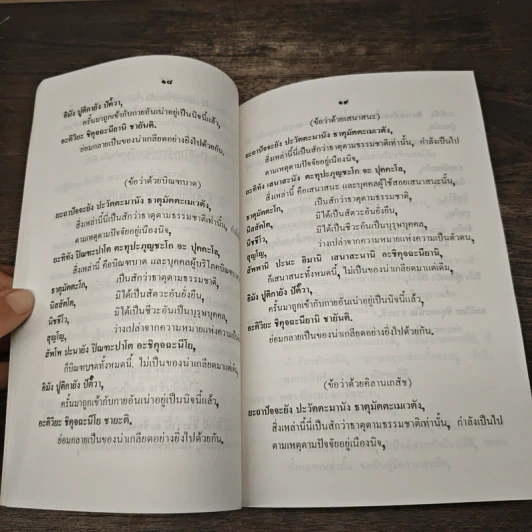 ๑๘
อิมัง ปูติกายัง ปัต๎วา,
ครั้นมาถูกเข้ากับกายอันเน่าอยู่เป็นนิจนี้แล้ว,
อะติวิยะ ชิคุจฉะนียานิ ชายันติ.
ย่อมกลายเป็นของน่าเกลียดอย่างยิ่งไปด้วยกัน.
(ข้อว่าด้วยบิณฑบาต)
ยะถาปัจจะยัง ปะวัตตะมานัง ธาตุมัตตะเมเวตัง,
สิ่งเหล่านี้นี่เป็นสักว่าธาตุตามธรรมชาติเท่านั้น,
ตามเหตุตามปัจจัยอยู่เนืองนิจ,
ยะทิทัง ปิณฑะปาโต ตะทุปะภุญชะโก จะ ปุคคะโล,
สิ่งเหล่านี้ คือบิณฑบาต และบุคคลผู้บริโภค
ธาตุมัตตะโก, เป็นสักว่าธาตุตามธรรมชาติ,
นิสสัตโต, มิได้เป็นสัตวะอันยั่งยืน,
นิชชีโว, มิได้เป็นชีวะอันเป็นบุรุษบุคคล,
สุญโญ, ว่างเปล่าจากความหมายแห่งความเป็น
สัพโพ ปะนายัง ปิณฑะปาโต อะชิคุจฉะนีโย,
ก็บิณฑบาตทั้งหมดนี้, ไม่เป็นของน่าเกลียดมาแต่เดิม,
อิมัง ปูติกายัง ปัต๎วา,
ครั้นมาถูกเข้ากับกายอันเน่าอยู่เป็นนิจนี้แล้ว,
อะติวิยะ ชิคุจฉะนีโย ชายะติ.
ย่อมกลายเป็นของน่าเกลียดอย่างยิ่งไปด้วยกัน.
๑๙
(ข้อว่าด้วยเสนาสนะ)
ยะถาปัจจะยัง ปะวัตตะมานัง ธาตุมัตตะเมเวตัง,
สิ่งเหล่านี้นี่เป็นสักว่าธาตุตามธรรมชาติเท่านั้น, กำลังเป็นไป
ตามเหตุตามปัจจัยอยู่เนืองนิจ,
ยะทิทัง เสนาสะนัง ตะทุปะภุญชะโก จะ ปุคคะโล,
สิ่งเหล่านี้ คือเสนาสนะ และบุคคลผู้ใช้สอยเสนาสนะนั้น,
ธาตุมัตตะโก, เป็นสักว่าธาตุตามธรรมชาติ,
นิสสัตโต, มิได้เป็นสัตวะอันยั่งยืน,
นิชชีโว, มิได้เป็นชีวะอันเป็นบุรุษบุคคล,
สุญโญ, ว่างเปล่าจากความหมายแห่งความเป็นตัวตน,
สัพพานิ ปะนะ อิมานิ เสนาสะนานิ อะชิคุจฉะนียานิ,
ก็เสนาสนะทั้งหมดนี้, ไม่เป็นของน่าเกลียดมาแต่เดิม,
อิมัง ปูติกายัง ปัต๎วา,
ครั้นมาถูกเข้ากับกายอันเน่าอยู่เป็นนิจนี้แล้ว,
อะติวิยะ ชิคุจฉะนียานิ ชายันติ.
ย่อมกลายเป็นของน่าเกลียดอย่างยิ่งไปด้วยกัน.
(ข้อว่าด้วยคิลานเภสัช)
ยะถาปัจจะยัง ปะวัตตะมานัง ธาตุมัตตะเมเวตัง,
สิ่งเหล่านี้นี่เป็นสักว่าธาตุตามธรรมชาติเท่านั้น, กำลังเป็นไป
ตามเหตุตามปัจจัยอยู่เนืองนิจ,